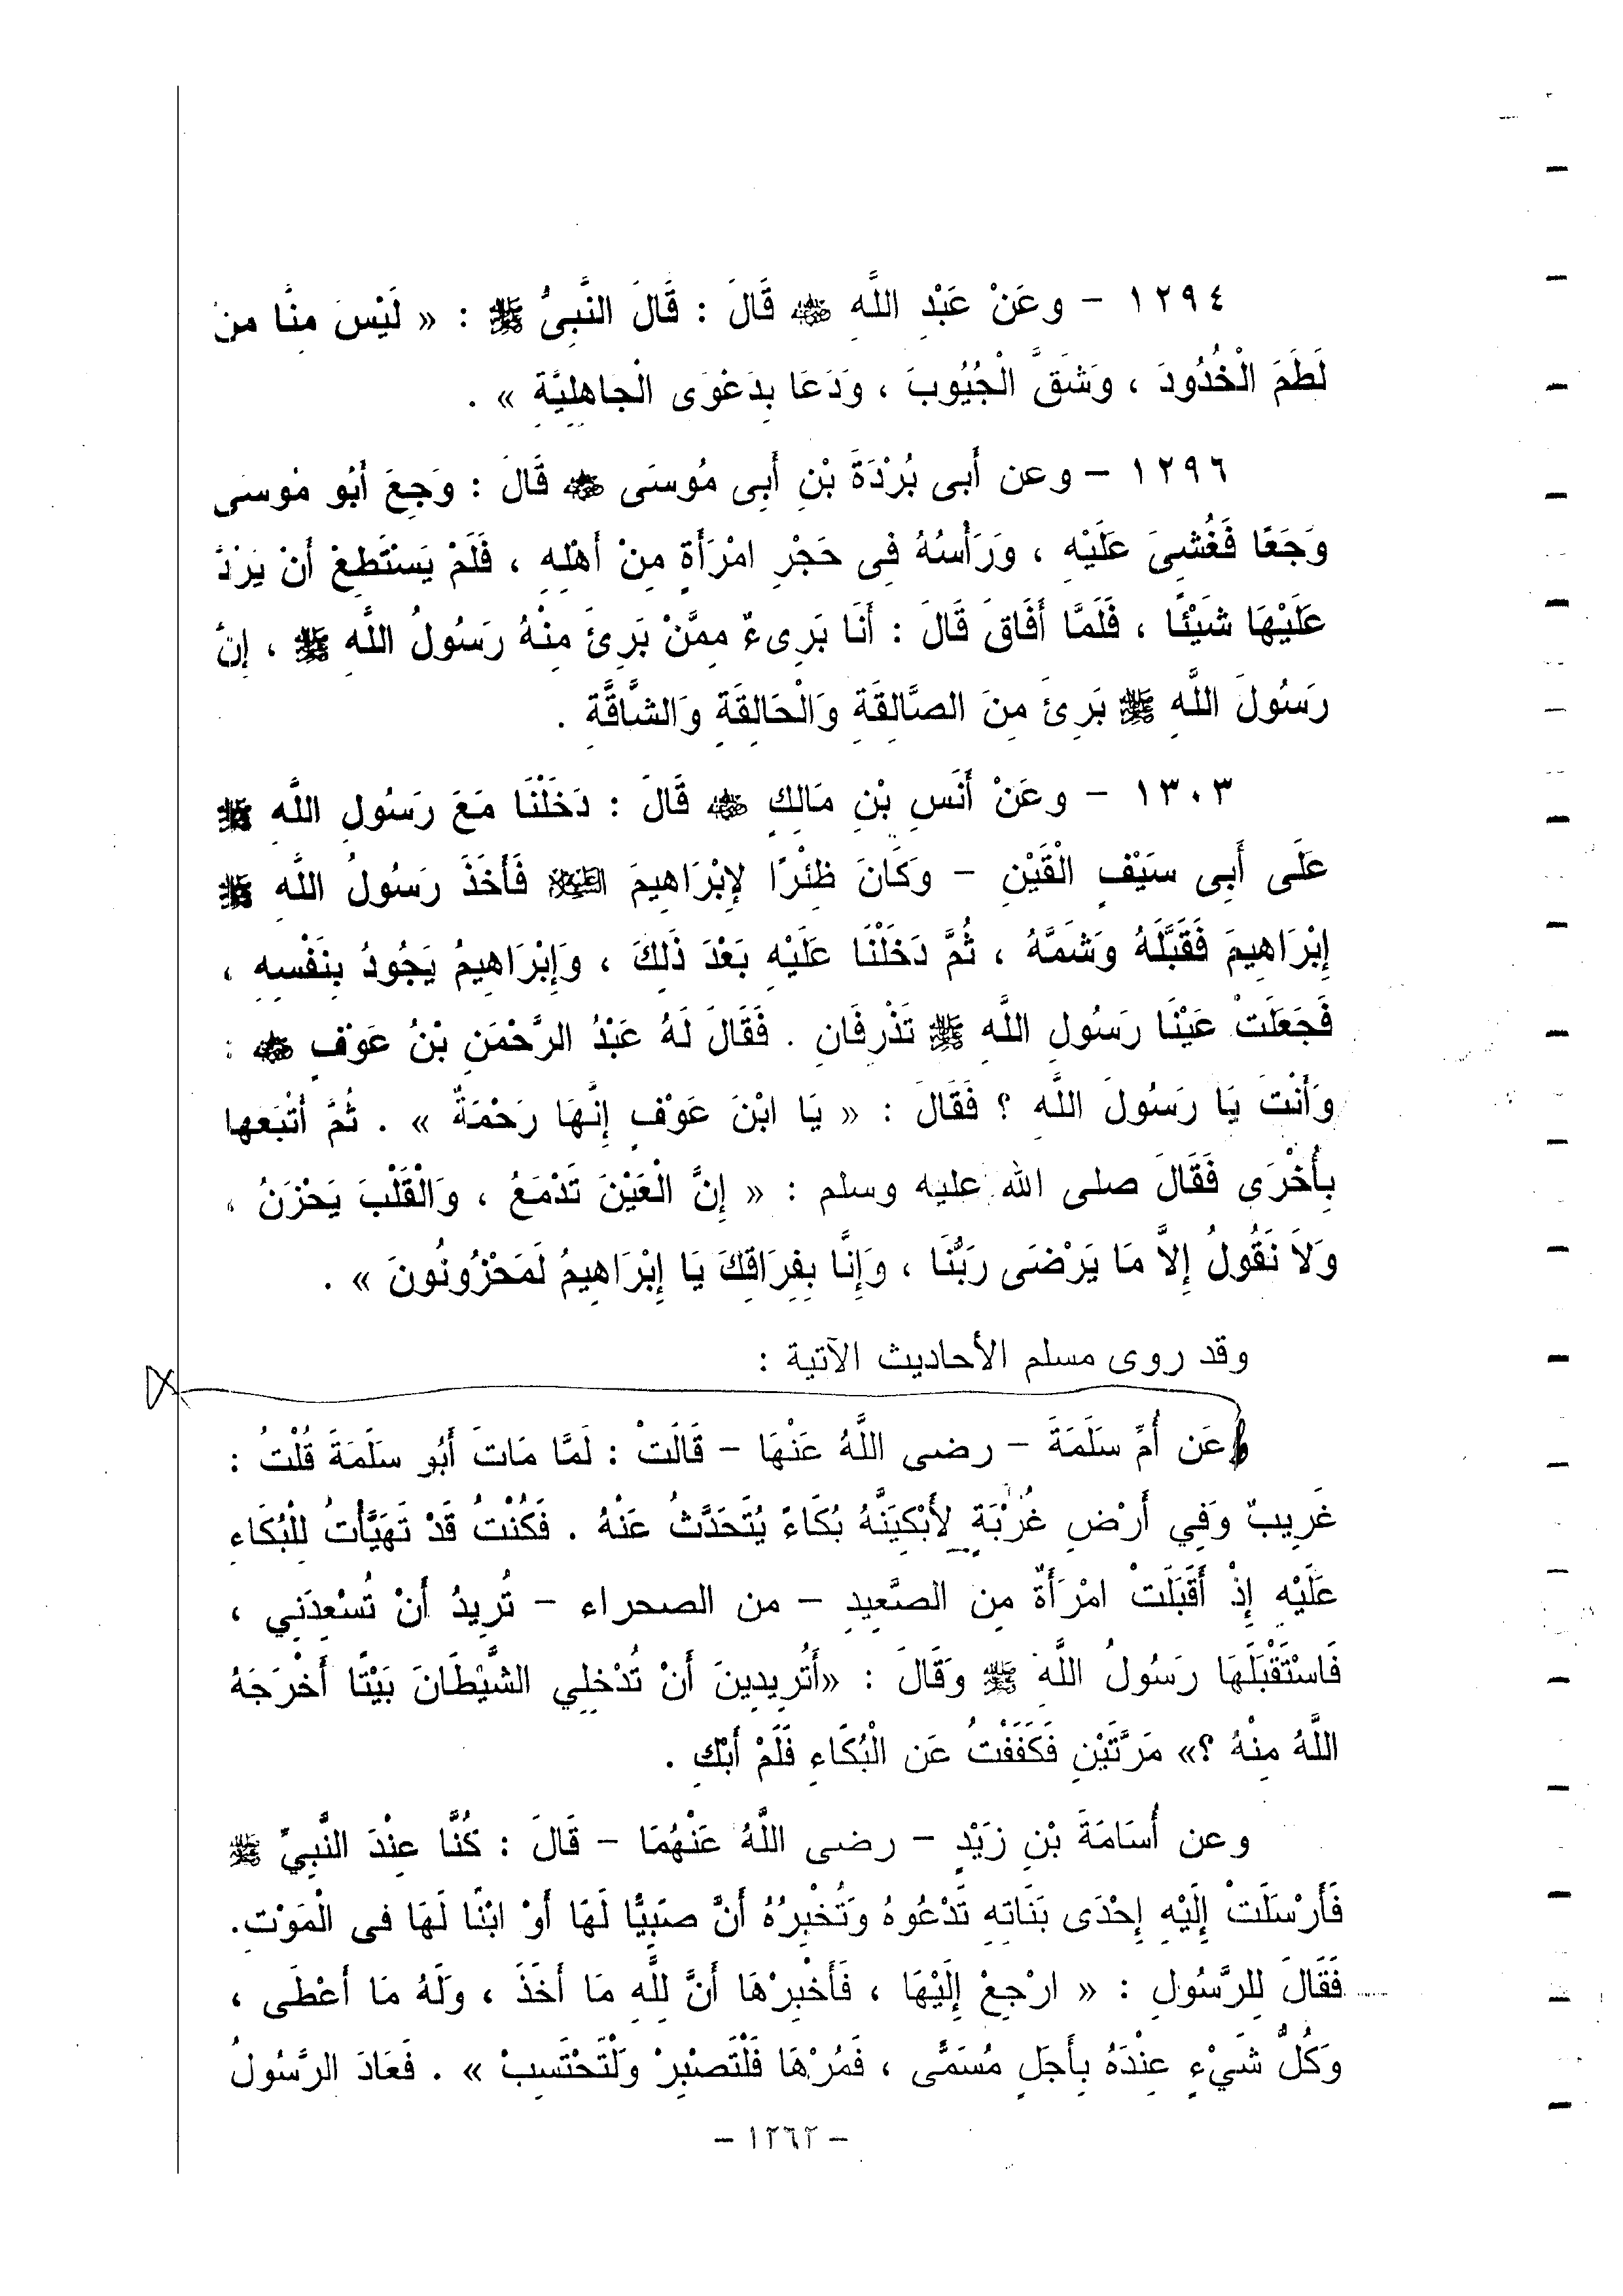 ١٢٩٤ - وعَنْ عَبْدِ اللَّهِ ﷺ قَالَ : قَالَ النَّبِىُّ ﷺ : « لَيْسَ مِنَّا مَنْ
لَطَمَ الْخُدُودَ ، وَشَقَّ الْجُيُوبَ ، وَدَعَا بِدَعْوَى الْجَاهِلِيَّةِ » .
١٢٩٦ - وعن أَبى بُرْدَةَ بْنِ أَبِى مُوسَى رضي الله عنه قَالَ : وَجِعَ أَبُو مُوسَى
وَجَعًا فَغُشِىَ عَلَيْهِ ، وَرَأْسُهُ فِى حَجْرِ امْرَأَةٍ مِنْ أَهْلِهِ ، فَلَمْ يَسْتَطِعْ أَنْ يَرُدَّ
عَلَيْهَا شَيْئًا ، فَلَمَّا أَفَاقَ قَالَ : أَنَا بَرِىءٌ مِمَّنْ بَرِئَ مِنْهُ رَسُولُ اللَّهِ ﷺ ، إِنَّ
رَسُولَ اللَّهِ ﷺ بَرِئَ مِنَ الصَّالِقَةِ وَالْحَالِقَةِ وَالشَّاقَّةِ .
١٣٠٣ - وعَنْ أَنَسِ بْنِ مَالِكٍ رضي الله عنه قَالَ : دَخَلْنَا مَعَ رَسُولِ اللَّهِ ﷺ
عَلَى أَبِى سَيْفٍ الْقَيْنِ - وَكَانَ ظِئْرًا لِإِبْرَاهِيمَ عليه السلام فَأَخَذَ رَسُولُ اللَّهِ ﷺ
إِبْرَاهِيمَ فَقَبَّلَهُ وَشَمَّهُ ، ثُمَّ دَخَلْنَا عَلَيْهِ بَعْدَ ذَلِكَ ، وَإِبْرَاهِيمُ يَجُودُ بِنَفْسِهِ ،
فَجَعَلَتْ عَيْنَا رَسُولِ اللَّهِ ﷺ تَذْرِفَانِ . فَقَالَ لَهُ عَبْدُ الرَّحْمَنِ بْنُ عَوْفٍ رضي الله عنه :
وَأَنْتَ يَا رَسُولَ اللَّهِ ؟ فَقَالَ : « يَا ابْنَ عَوْفٍ إِنَّهَا رَحْمَةٌ » . ثُمَّ أَتْبَعَها
بِأُخْرَى فَقَالَ صلى الله عليه وسلم : « إِنَّ الْعَيْنَ تَدْمَعُ ، وَالْقَلْبَ يَحْزَنُ ،
وَلَا نَقُولُ إِلاَّ مَا يَرْضَى رَبُّنَا ، وَإِنَّا بِفِرَاقِكَ يَا إِبْرَاهِيمُ لَمَحْزُونُونَ » .
وقد روى مسلم الأحاديث الآتية :
عَن أُمِّ سَلَمَةَ - رضى اللَّهُ عَنْهَا - قَالَتْ : لَمَّا مَاتَ أَبُو سَلَمَةَ قُلْتُ :
غَرِيبٌ وَفِي أَرْضِ غُرْبَةٍ لأَبْكِيَنَّهُ بُكَاءً يُتَحَدَّثُ عَنْهُ . فَكُنْتُ قَدْ تَهَيَّأْتُ لِلْبُكَاءِ
عَلَيْهِ إِذْ أَقْبَلَتْ امْرَأَةٌ مِن الصَّعِيدِ - من الصحراء - تُرِيدُ أَنْ تُسْعِدَنِي ،
فَاسْتَقْبَلَهَا رَسُولُ اللَّهِ ﷺ وَقَالَ : «أَتُرِيدِينَ أَنْ تُدْخِلِي الشَّيْطَانَ بَيْتًا أَخْرَجَهُ
اللَّهُ مِنْهُ ؟» مَرَّتَيْنِ فَكَفَفْتُ عَن الْبُكَاءِ فَلَمْ أَبْكِ .
وعن أُسَامَةَ بْنِ زَيْدٍ - رضى اللَّهُ عَنْهُمَا - قَالَ : كُنَّا عِنْدَ النَّبِيِّ ﷺ
فَأَرْسَلَتْ إِلَيْهِ إِحْدَى بَنَاتِهِ تَدْعُوهُ وَتُخْبِرُهُ أَنَّ صَبِيًّا لَهَا أَوْ ابْنًا لَهَا فى الْمَوْتِ.
فَقَالَ لِلرَّسُولِ : « ارْجِعْ إِلَيْهَا ، فَأَخْبِرْهَا أَنَّ لِلَّهِ مَا أَخَذَ ، وَلَهُ مَا أَعْطَى ،
وَكُلُّ شَيْءٍ عِنْدَهُ بِأَجَلٍ مُسَمًّى ، فَمُرْهَا فَلْتَصْبِرْ وَلْتَحْتَسِبْ » . فَعَادَ الرَّسُولُ
- ١٢٦٢ -